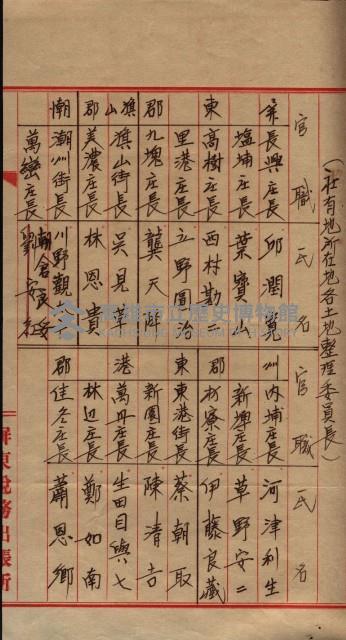 (社有地所在地各土地整理委員長)
官職 氏名 官職 氏名
長興庄長 邱潤寬 州 內埔庄長 河津利生
塩埔庄長 葉寶山 新埤庄長 草野安二
東 高樹庄長 西村勘二 郡 枋寮庄長 伊藤良藏
里港庄長 立野冨治 東 東港街長 蔡朝取
郡 九塊庄長 龔天降 新園庄長 陳清吉
旗山 旗山街長 吳見草 港 萬丹庄長 生田目與七
郡 美濃庄長 林恩貴 林辺庄長 鄭如南
潮 潮州街長 川野觀 郡 佳冬庄長 蕭恩鄉
萬巒庄長 劉安
屏東稅務出張所
高雄市立歷史博物館